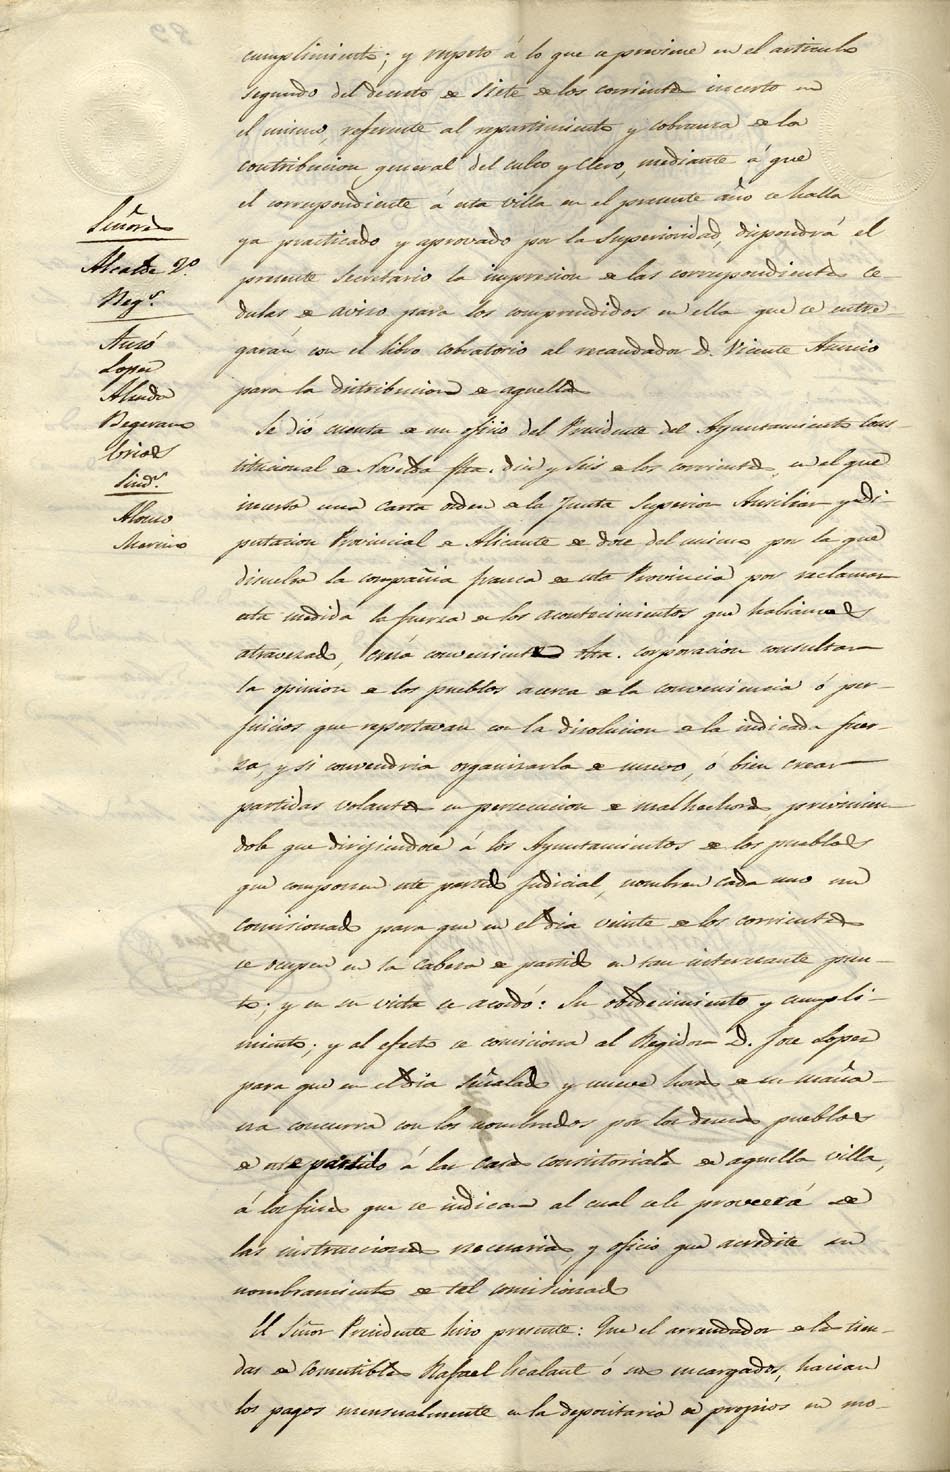 Señores
Alcalde 2.º
Reg.s
Aznó
Lopez
Alenda
Begerano
Sind.s
Alonso
Merino
cumplimiento; y respeto á lo que se previene en el articulo
segundo del decreto de siete de los corrientes incerto en
el mismo, referente al repartimiento y cobranza de la
contribucion general del culto y clero, mediante á que
el correspondiente á esta villa en el presente año se halla
ya practicado y aprovado por la Superioridad, dispondrá el
presente Secretario la impresion de las correspondientes ce-
dulas de aviso para los comprendidos en ella que se entre-
garán con el libro cobratorio al recaudador D. Vicente
para la distribucion de aquellas
Se dió cuenta de un oficio del Presidente del Ayuntamiento Cons-
titucional de Novelda fha. diez y seis de los corrientes, en el que
inserta una carta orden de la Junta Superior Auxiliar y di-
putacion Provincial de Alicante de doce del mismo por la que
disuelta la compañia franca de esta Provincia por reclamar
esta medida la fuerza de los acontecimientos que habiamos
atravezado, creía conveniente dha. corporacion consultar
la opinion de los pueblos acerca de la conveniencia ó per-
juicios que reportavan con la disolucion de la indicada fuer-
za, y si convendria organizarla de nuevo, ó bien crear
partidas volantes en percecucion de malhechores, previnien-
dole que dirijiendose á los Ayuntamientos de los pueblos
que componen este partido judicial, nombren cada uno un
comisionado para que en el dia veinte de los corrientes
se ocupen en la cabeza de partido en tan interesante pun-
to; y en su vista se acordó: Su obedecimiento y cumpli-
miento; y al efecto se comisiona al Regidor D. Jose Lopez
para que en el dia señalado y nueve horas de su maña-
na concurra con los nombrados por los demas pueblos
de este partido á las casas consistoriales de aquella villa,
á los fines que se indican al cual se le proveerá de
las instrucciones necesarias, y oficio que acredite su
nombramiento de tal comisionado
El Señor Presidente hizo presente: Que el arrendador de las tien-
das de comestibles Rafael ó sus encargados, hacian
los pagos mensualmente en la depositaria de propios en mo-